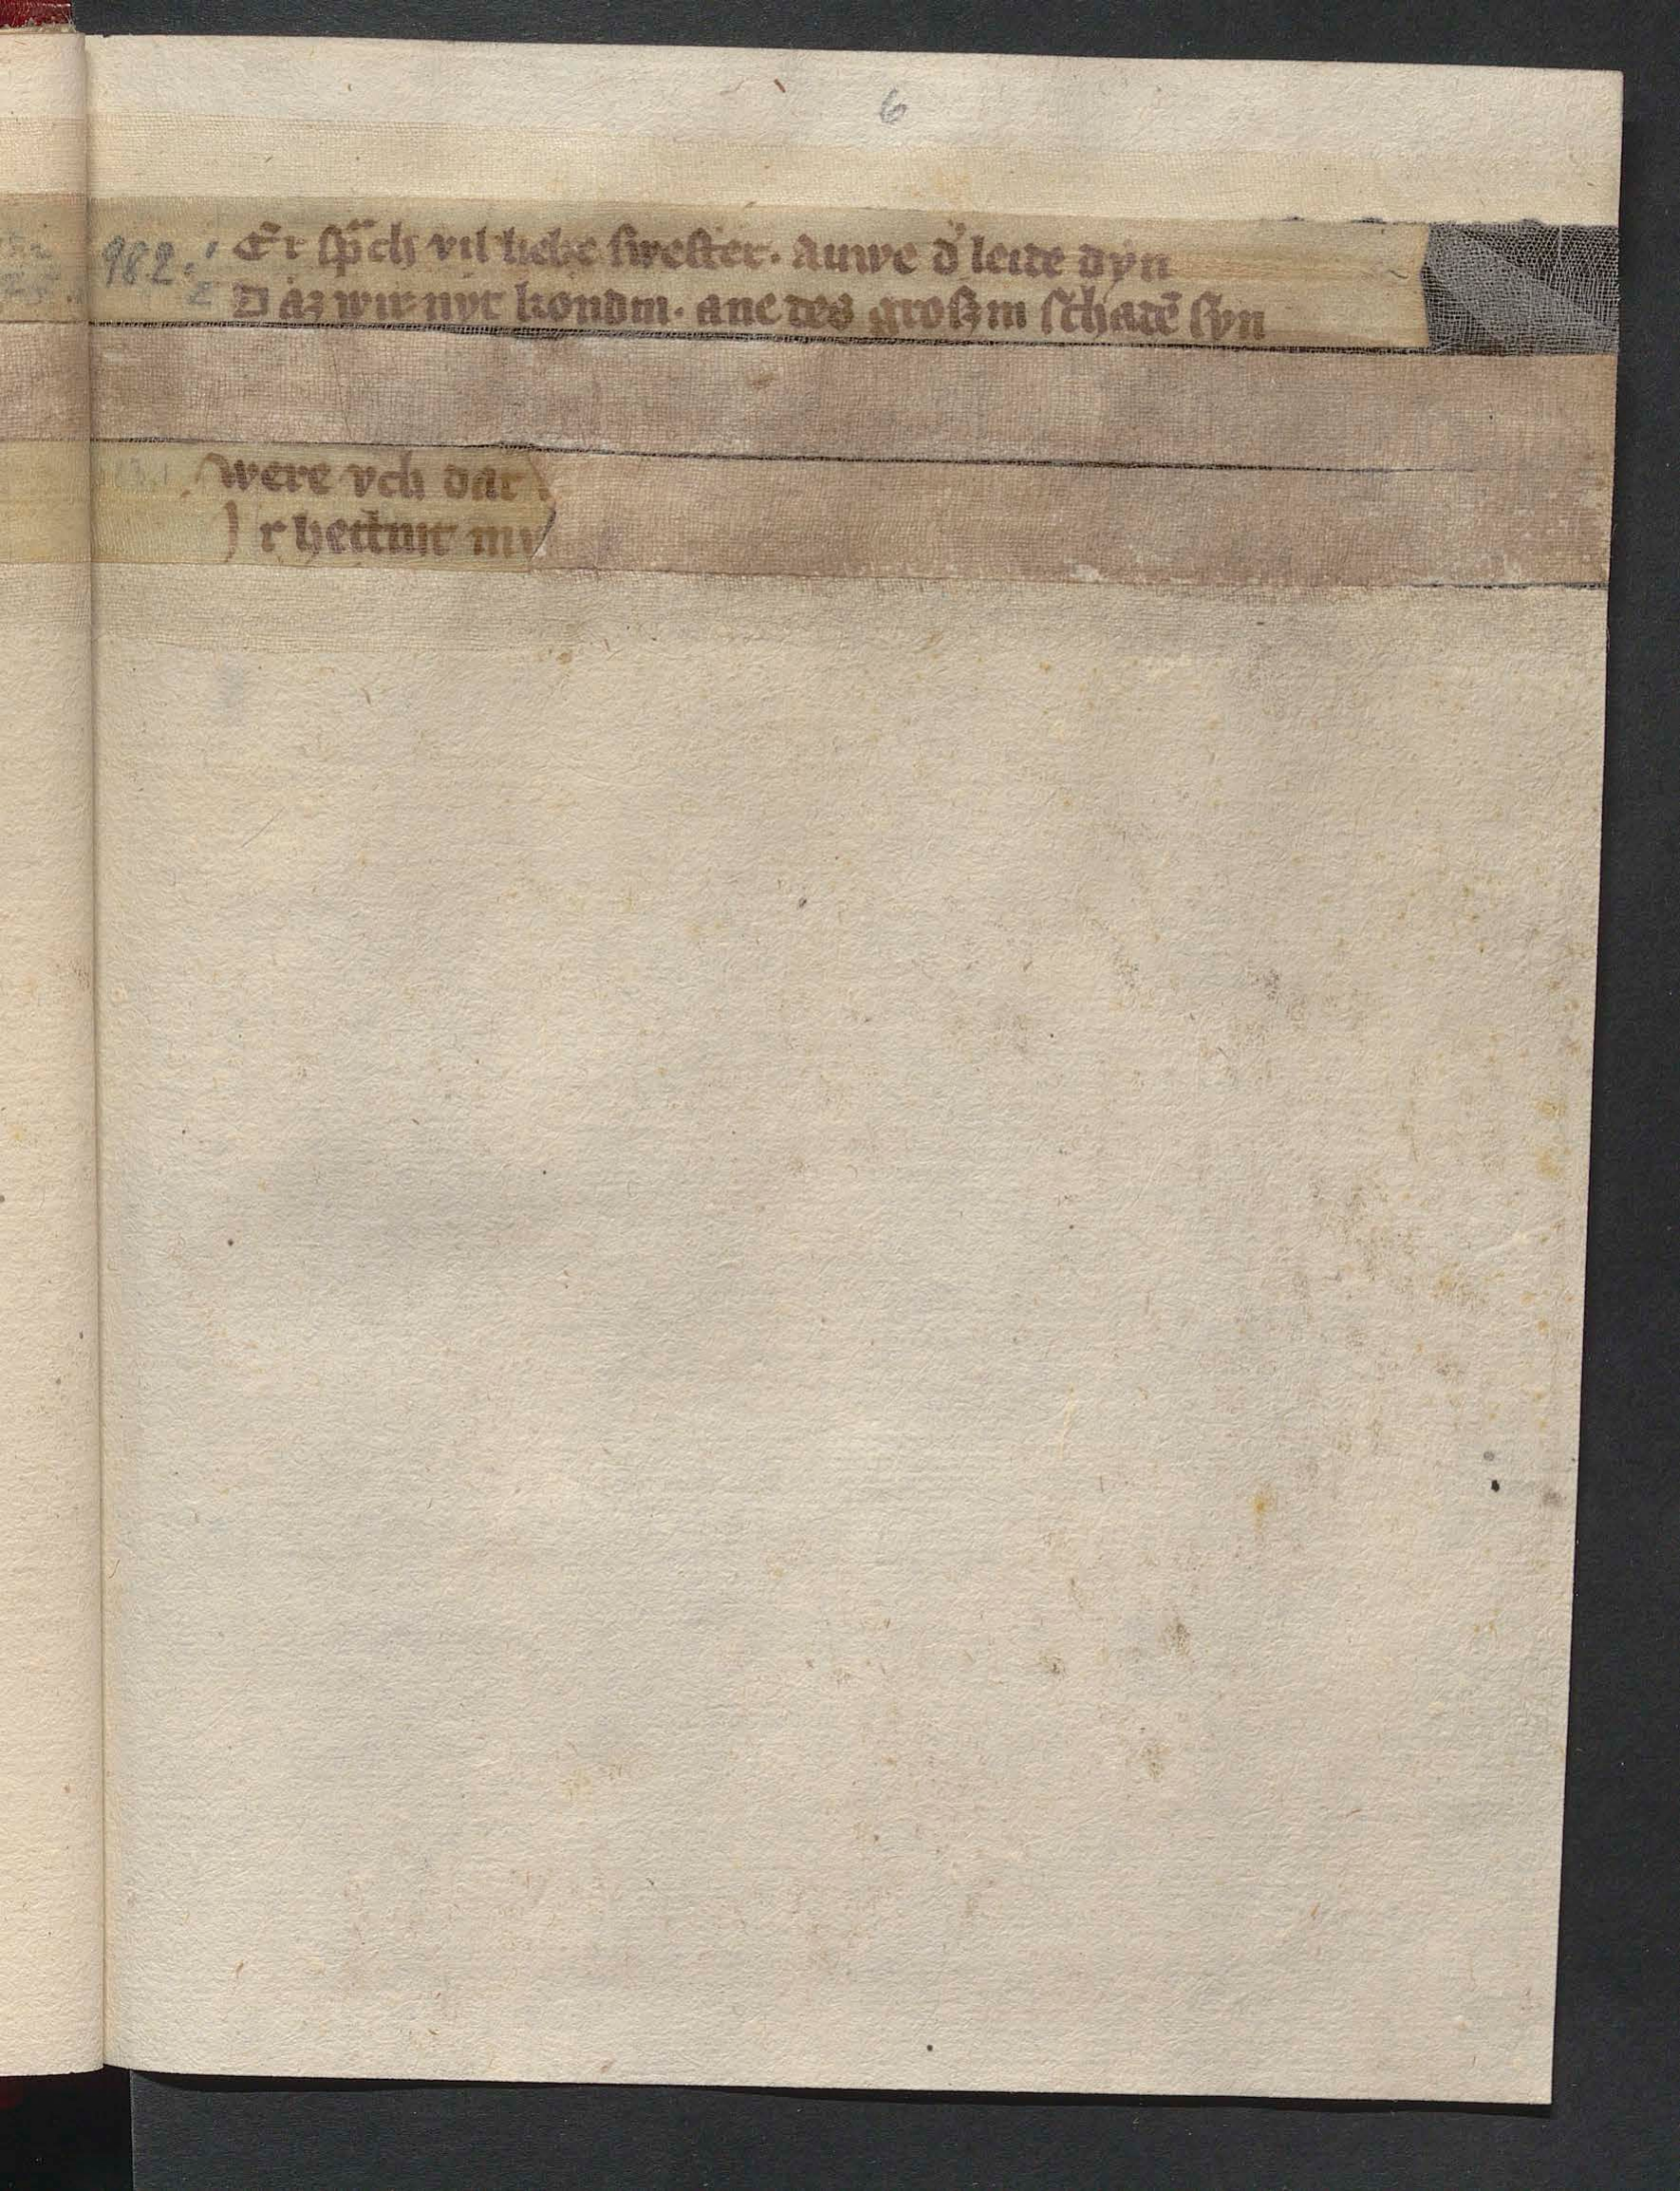 6
982.1 Er sp̃ch vil liebe swester. auwe d' leide dyn
2 D az wir nyt kondin. ane des großin schadē syn
were vch dar
J r hettint mi